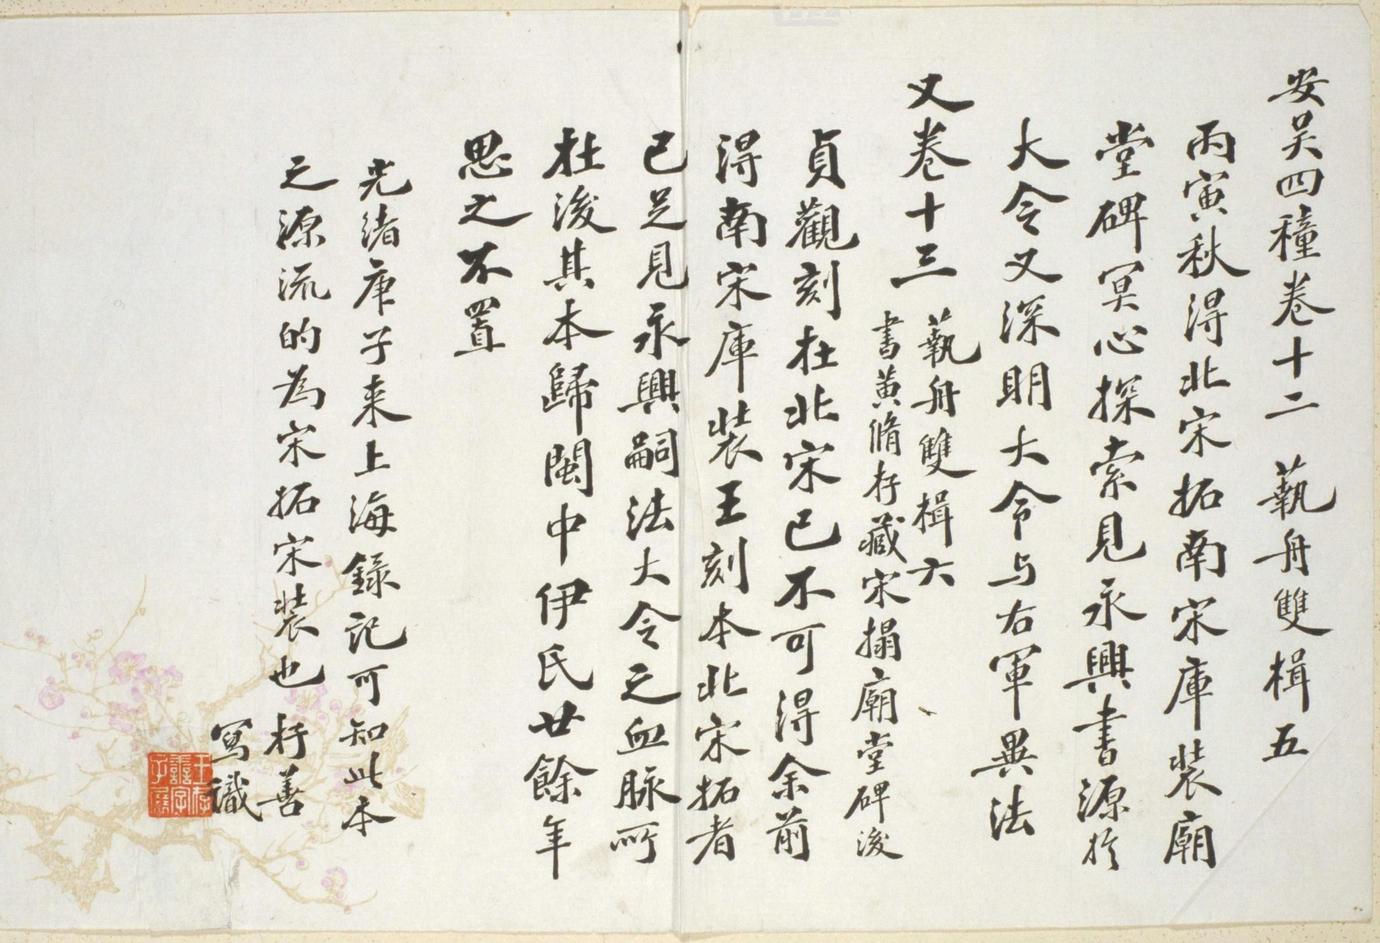 安吴四種卷十二 藝舟雙楫五
丙寅秋得北宋拓南宋庫裝廟
堂碑冥心探索見永興書源於
大令又深明大令与右軍異法
又卷十三 藝舟雙楫六
書黄脩存藏宋搨廟堂碑後
貞觀刻在北宋已不可得余前
得南宋庫裝王刻本北宋拓者
已足見永興嗣法大令之血脉所
在後其本歸閩中伊氏廿餘年
思之不置
光緒庚子来上海錄記可知此本
之源流的為宋拓宋裝也 存善
寫識